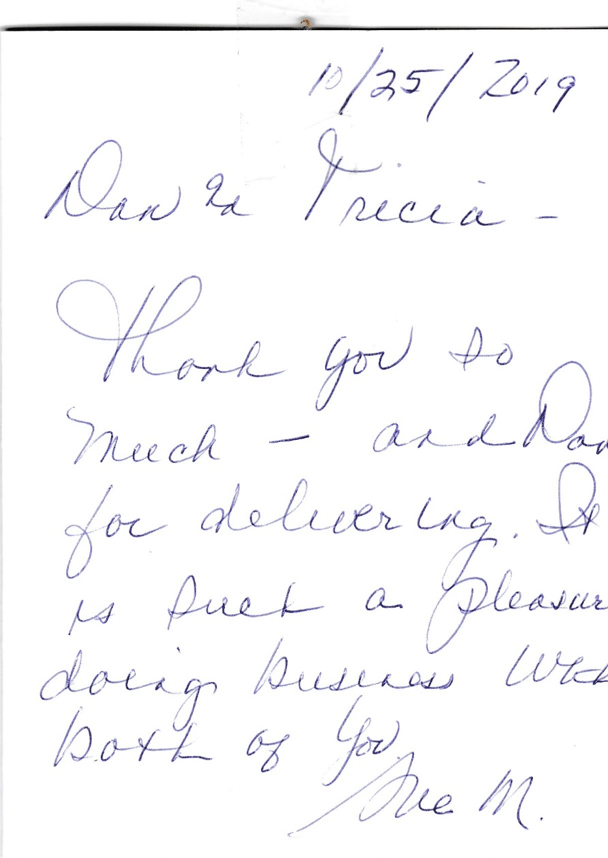 10/25/2019
Dan & Tricia -
Thank you so
much - and Dan
for delivering. It
is such a pleasur
doing business with
both of you.
Sue M.